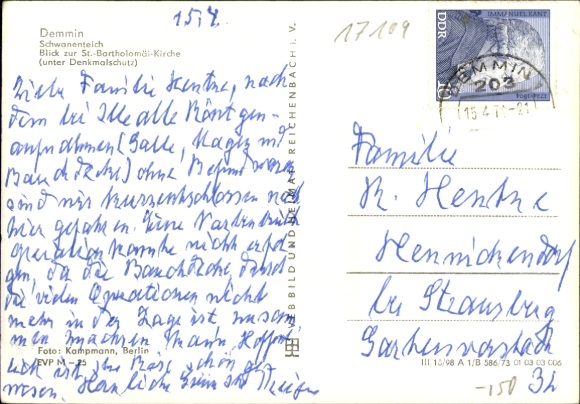 15.4.
17109
Demmin
Schwanenteich
Blick zur St.-Bartholomäi-Kirche
(unter Denkmalschutz)
Liebe Familie Hentze, nach
dem bei Ille alle Röntgen-
aufnahmen (Galle, Magen und
Bauchdecke) ohne Befund waren
sind wir kurzentschlossen nach
hier gefahren. Eine Narbenbruch
operation konnte nicht erfol
gen, da die Bauchdecke, durch
die vielen Operationen nicht
mehr in der Lage ist zusam
men wachsen kann. Hoffent
lich ist die schön ge
wesen. Herzliche Grüße
Foto: Kampmann, Berlin
EVP M –25
VEB BILD UND HEIMAT REICHENBACH i. V.
IMMANUEL KANT
DDR
10
DEMMIN
203
Familie
K. Hentze
Hennickendorf
bei Strausberg
Gartenvorstadt
III 15/98 A 1/B 586/73 01 03 03 006
-150